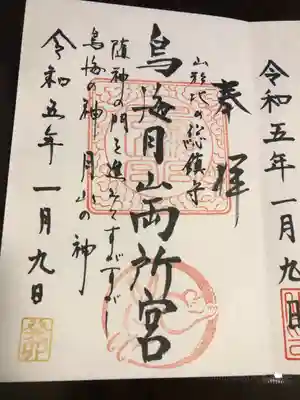 令和五年一月九日
奉拝
山形地の総鎮守
鳥海月山両所宮
随神の門を進みてすがすが
鳥海の神月山の神
令和五年一月九日